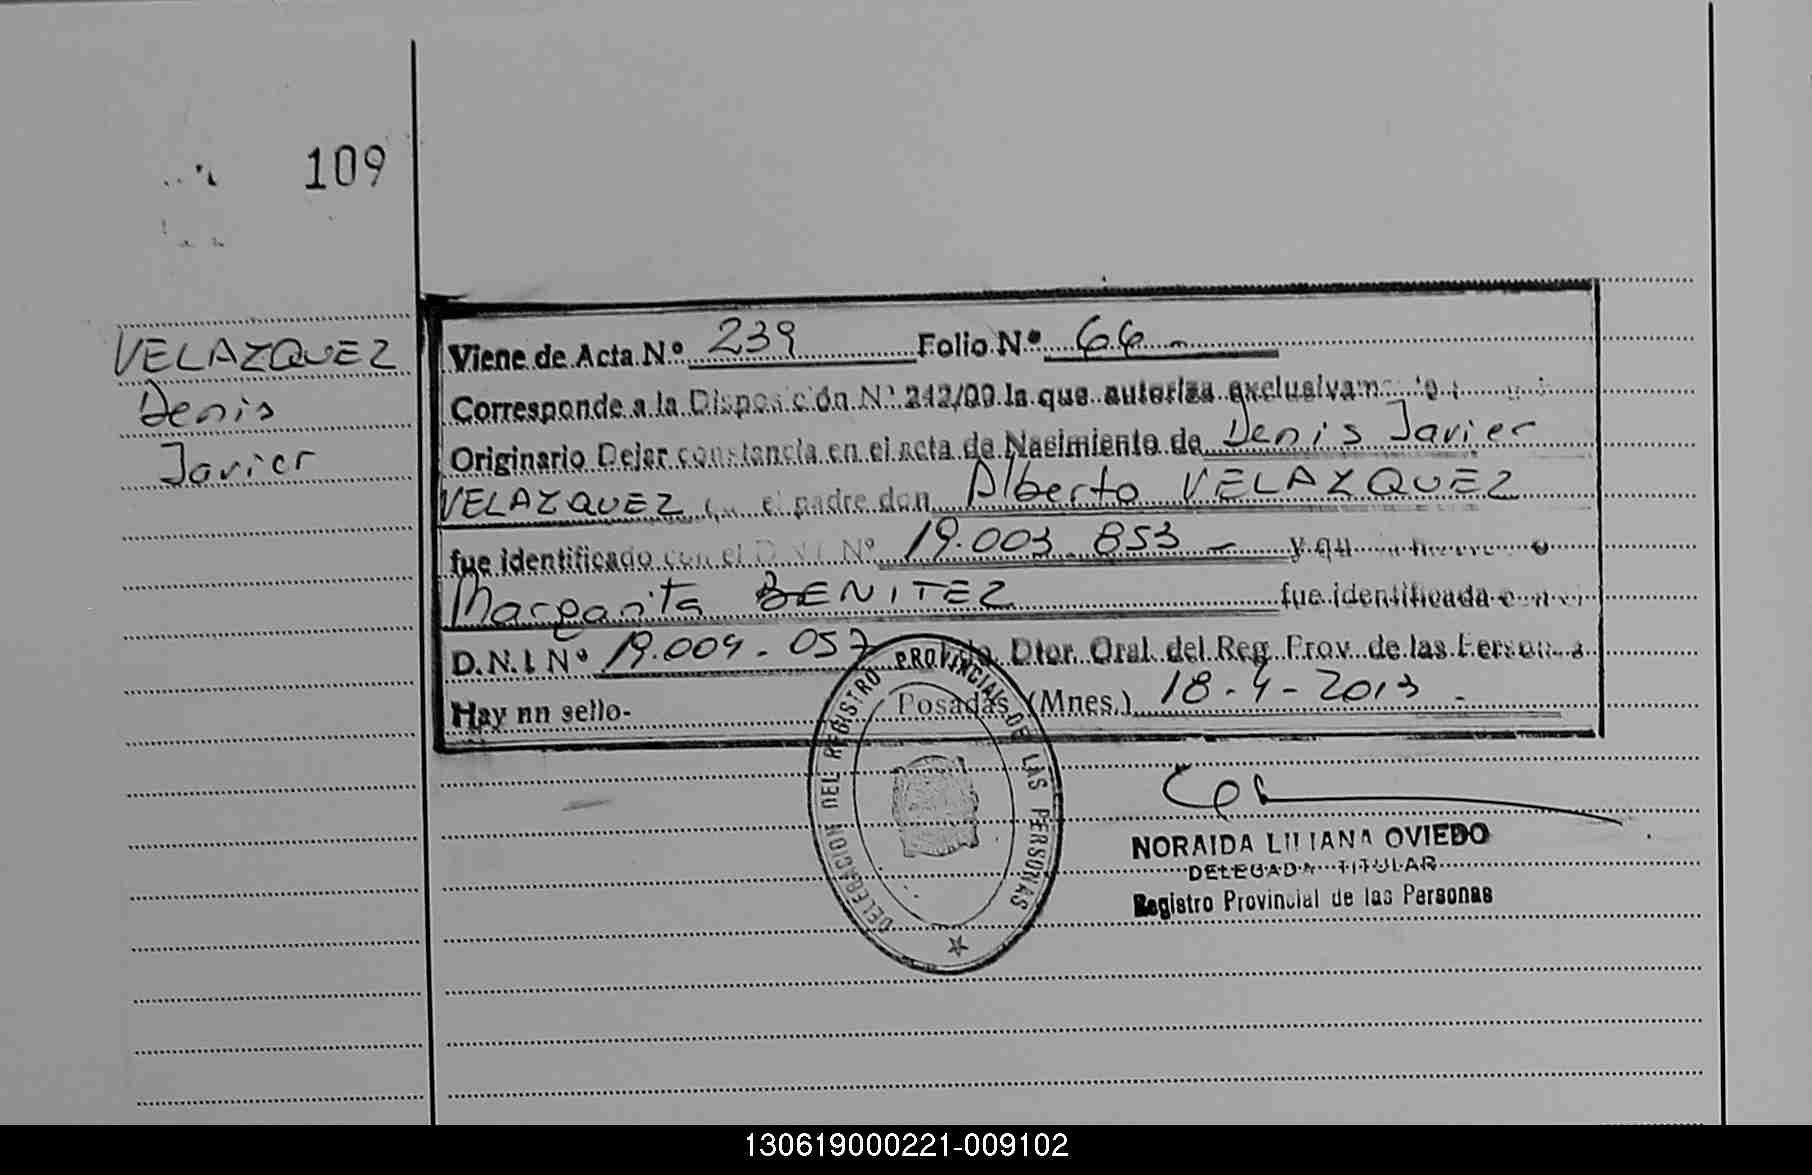 109
VELAZQUEZ
Denis
Javier
Viene de Acta N.º 239 Folio Nº 66 -
Corresponde a la Disposición Nº 242/00 la que autoriza
Originario Dejar constancia en el acta de Nacimiento de Denis Javier
VELAZQUEZ el padre don Alberto VELAZQUEZ
fue identificado con el D.N.I. Nº 19.003.853 -
Margarita BENITEZ fue identificada
D.N.I. Nº 19.009.057 Dtor. Oral. del Reg. Prov. de las Personas
Hay nn sello- Posadas (Mnes.) 18-4-2013 -
DELEGACION DEL REGISTRO PROVINCIAL DE LAS PERSONAS
NORAIDA LILIANA OVIEDO
DELEGADA TITULAR
Registro Provincial de las Personas
130619000221-009102